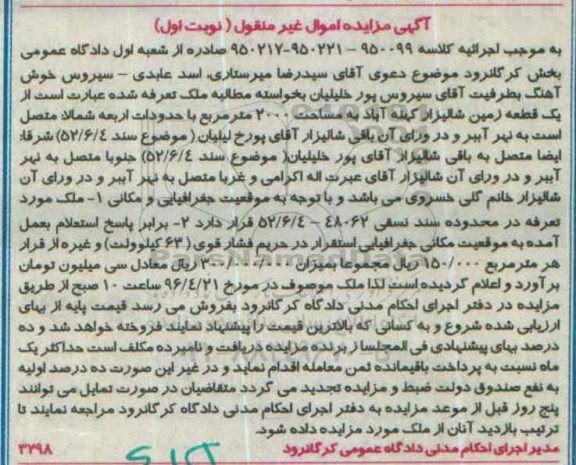 آگهی مزایده اموال غیر منقول ( نوبت اول)
به موجب اجرائیه کلاسه ۹۵۰۰۹۹ – ۹۵۰۲۲۱-۹۵۰۲۱۷ صادره از شعبه اول دادگاه عمومی
بخش کرگانرود موضوع دعوی آقای سیدرضا میرستاری، اسد عابدی – سیروس خوش
آهنگ بطرفیت آقای سیروس پور خلیلیان بخواسته مطالبه ملک تعرفه شده عبارت است از
یک قطعه زمین شالیزار کهنه آباد به مساحت ۲۰۰۰ مترمربع با حدودات اربعه شمالا: متصل
است به نهر آببر و در ورای آن باقی شالیزار آقای پورخ لیلیان ( موضوع سند ۵۲/۶/٤) شرقا:
ایضا متصل به باقی شالیزار آقای پور خلیلیان( موضوع سند ۵۲/۶/٤) جنوبا متصل به نهر
آببر و در ورای آن شالیزار آقای عبرت اله اکرامی و غربا متصل به نهر آببر و در ورای آن
شالیزار خانم گلی خسروی می باشد و با توجه به موقعیت جغرافیایی و مکانی ۱- ملک مورد
تعرفه در محدوده سند نسقی ۴۸۰۶۲ – ۵۲/۶/٤ قرار دارد ۲- برابر پاسخ استعلام بعمل
آمده به موقعیت مکانی جغرافیایی استقرار در حریم فشار قوی ( ۶۳ کیلوولت) و غیره از قرار
هر مترمربع ۱۵۰/۰۰۰ ریال مجموعا بمیزان ۳۰۰/۰۰۰/۰۰۰ ریال معادل سی میلیون تومان
برآورد و اعلام گردیده است لذا ملک موصوف در مورخ ۹۶/٤/۲۱ ساعت ۱۰ صبح از طریق
مزایده در دفتر اجرای احکام مدنی دادگاه کرگانرود بفروش می رسد قیمت پایه از بهای
ارزیابی شده شروع و به کسانی که بالاترین قیمت را پیشنهاد نمایند فروخته خواهد شد و ده
درصد بهای پیشنهادی فی المجلس از برنده مزایده دریافت و نامبرده مکلف است حداکثر یک
ماه نسبت به پرداخت باقیمانده ثمن معامله اقدام نماید و در غیر این صورت ده درصد اولیه
به نفع صندوق دولت ضبط و مزایده تجدید می گردد متقاضیان در صورت تمایل می توانند
پنج روز قبل از موعد مزایده به دفتر اجرای احکام مدنی دادگاه کرگانرود مراجعه نمایند تا
ترتیب بازدید آنان از ملک مورد مزایده داده شود.
مدیر اجرای احکام مدنی دادگاه عمومی کرگانرود ۳۳۹۸